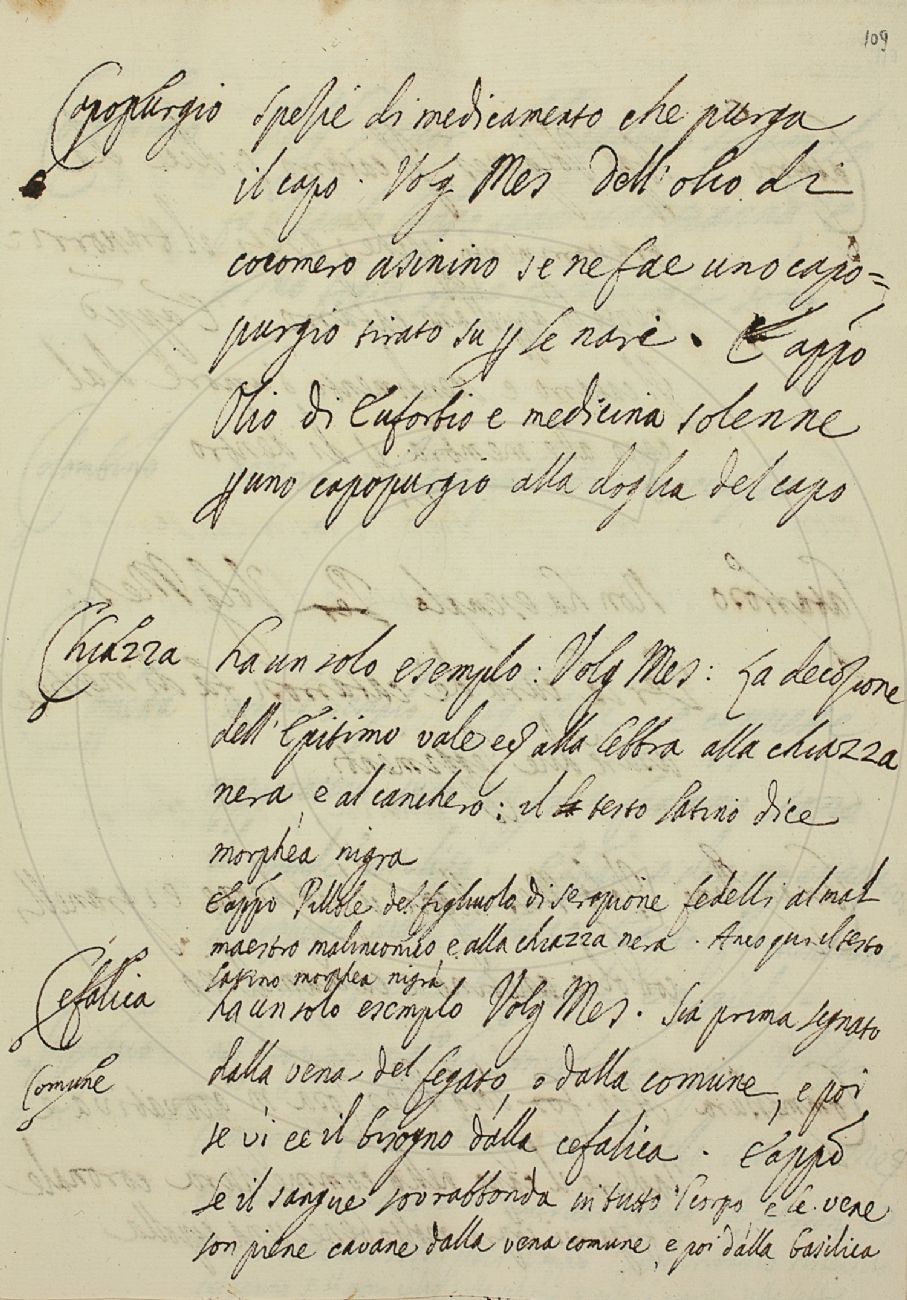 109
Capopurgio spezie di medicamento che purga
il capo. Volg Mes Dell'olio di
cocomero asinino se ne fae uno capo=
purgio tirato su p le nari. E appo
Olio di Euforbio e medicina solenne
p uno capopurgio alla doglia del capo
Chiazza ha un solo esemplo: Volg Mes: La decozione
dell'Epitimo vale alla lebbra alla chiazza
nera, e al canchero: il testo latino dice
morphea nigra
E appo Pillole del figliuolo di Serapione fedelli al mal
maestro malinconico, e alla chiazza nera. Anco qui il testo
latino morphea nigra
Cefalica ha un solo esemplo Volg Mes. Sia prima segnato
dalla vena del fegato, o dalla comune, e poi
Comune
se vi ee il bisogno dalla cefalica. E appo
se il sangue sovrabbonda in tutto 'l corpo, e le vene
son piene cavane dalla vena comune, e poi dalla basilica